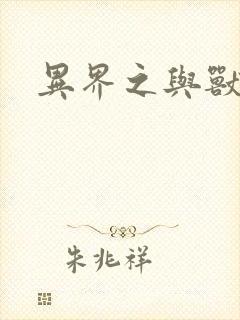 異界之與獸
朱兆祥